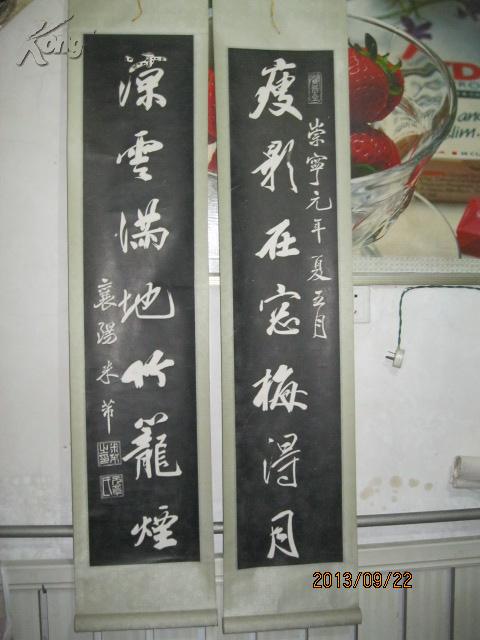 崇寧元年夏五月
瘦影在窓梅得月
涼雲滿地竹籠煙
襄陽米芾
2013/09/22